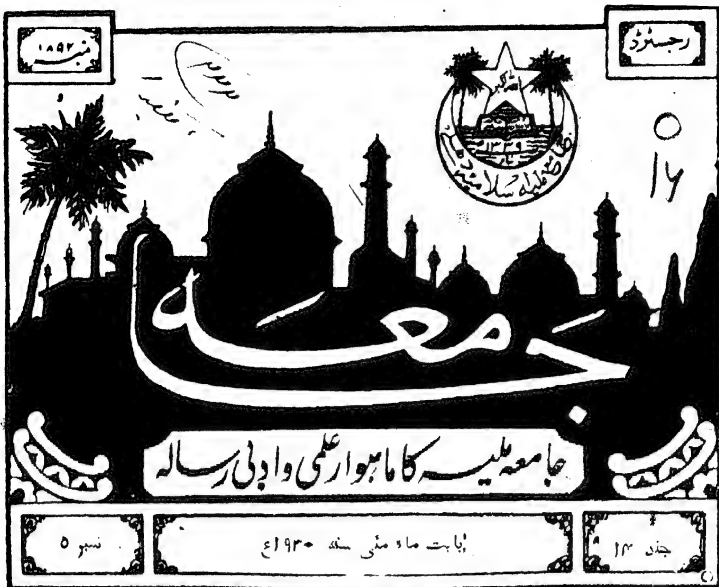 رجسٹرڈ
نمبر ۱۸۵۲
اللہ اکبر
۱۳۳۹
جامعہ ملیہ اسلامیہ دہلی
۱۶
جامعہ
جامعہ ملیہ کا ماہوار علمی و ادبی رسالہ
جلد ۱۴
بابت ماہ مئی سنہ ۱۹۳۰ع
نمبر ۵